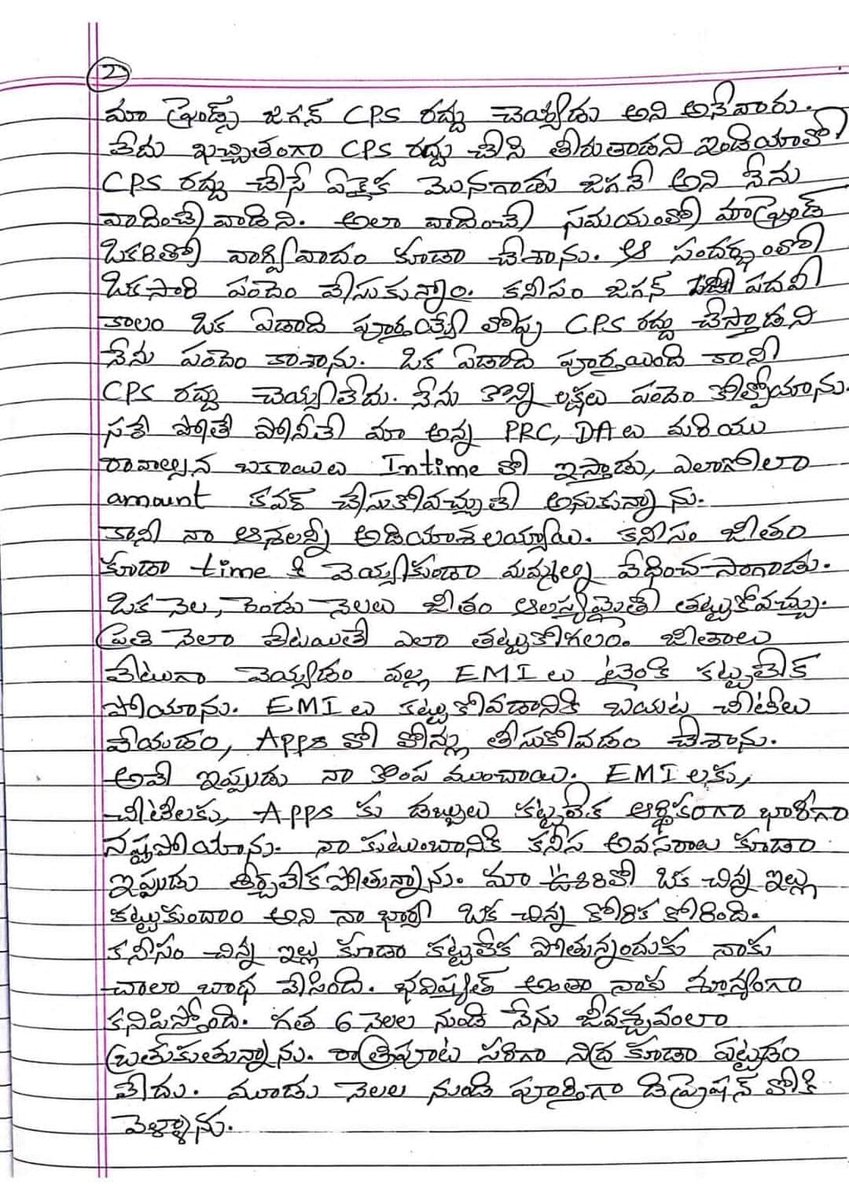 2
మా ఫ్రెండ్స్ జగన్ CPS రద్దు చెయ్యడు అని అనేవారు.
లేదు ఖచ్చితంగా CPS రద్దు చేసి తీరుతాడని ఇండియాలో
CPS రద్దు చేసే ఏకైక మొనగాడు జగనే అని నేను
వాదించే వాడిని. అలా వాదించే సమయంలో మా ఫ్రెండ్
ఒకరితో వాగ్వివాదం కూడా చేశాను. ఆ సందర్భంలో
ఒకసారి పందెం వేసుకున్నాం. కనీసం జగన్ పదవీ
కాలం ఒక ఏడాది పూర్తయ్యే లోపు CPS రద్దు చేస్తాడని
నేను పందెం కాశాను. ఒక ఏడాది పూర్తయింది కానీ
CPS రద్దు చెయ్యలేదు. నేను కొన్ని లక్షలు పందెం కోల్పోయాను.
సరే పోతే పోనీలే మా అన్న PRC, DA లు మరియు
రావాల్సిన బకాయిలు Intime లో ఇస్తాడు, ఎలాగోలా
amount కవర్ చేసుకోవచ్చులే అనుకున్నాను.
కానీ నా ఆశలన్నీ అడియాశలయ్యాయి. కనీసం జీతం
కూడా time కి వెయ్యకుండా మమ్మల్ని వేధించసాగాడు.
ఒక నెల, రెండు నెలలు జీతం ఆలస్యమైతే తట్టుకోవచ్చు.
ప్రతి నెలా లేటయితే ఎలా తట్టుకోగలం. జీతాలు
లేటుగా వెయ్యడం వల్ల EMI లు టైంకి కట్టలేక
పోయాను. EMI లు కట్టుకోవడానికి బయట చీటీలు
వేయడం, Apps లో లోన్లు తీసుకోవడం చేశాను.
అవే ఇప్పుడు నా కొంప ముంచాయి. EMI లకు,
చీటీలకు, Apps కు డబ్బులు కట్టలేక ఆర్థికంగా భారీగా
నష్టపోయాను. నా కుటుంబానికి కనీస అవసరాలు కూడా
ఇప్పుడు తీర్చలేకపోతున్నాను. మా ఊరిలో ఒక చిన్న ఇల్లు
కట్టుకుందాం అని నా భార్య ఒక చిన్న కోరిక కోరింది.
కనీసం చిన్న ఇల్లు కూడా కట్టలేక పోతున్నందుకు నాకు
చాలా బాధ వేసింది. భవిష్యత్ అంతా నాకు శూన్యంగా
కనిపిస్తోంది. గత 6 నెలల నుండి నేను జీవశ్చవంలా
బ్రతుకుతున్నాను. రాత్రిపూట సరిగా నిద్ర కూడా పట్టడం
లేదు. మూడు నెలల నుండి పూర్తిగా డిప్రెషన్ లోకి
వెళ్ళాను.